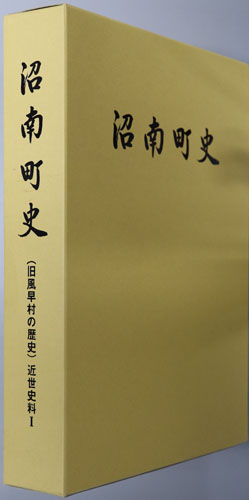 沼南町史
(旧風早村の歴史) 近世史料 I
沼南町史